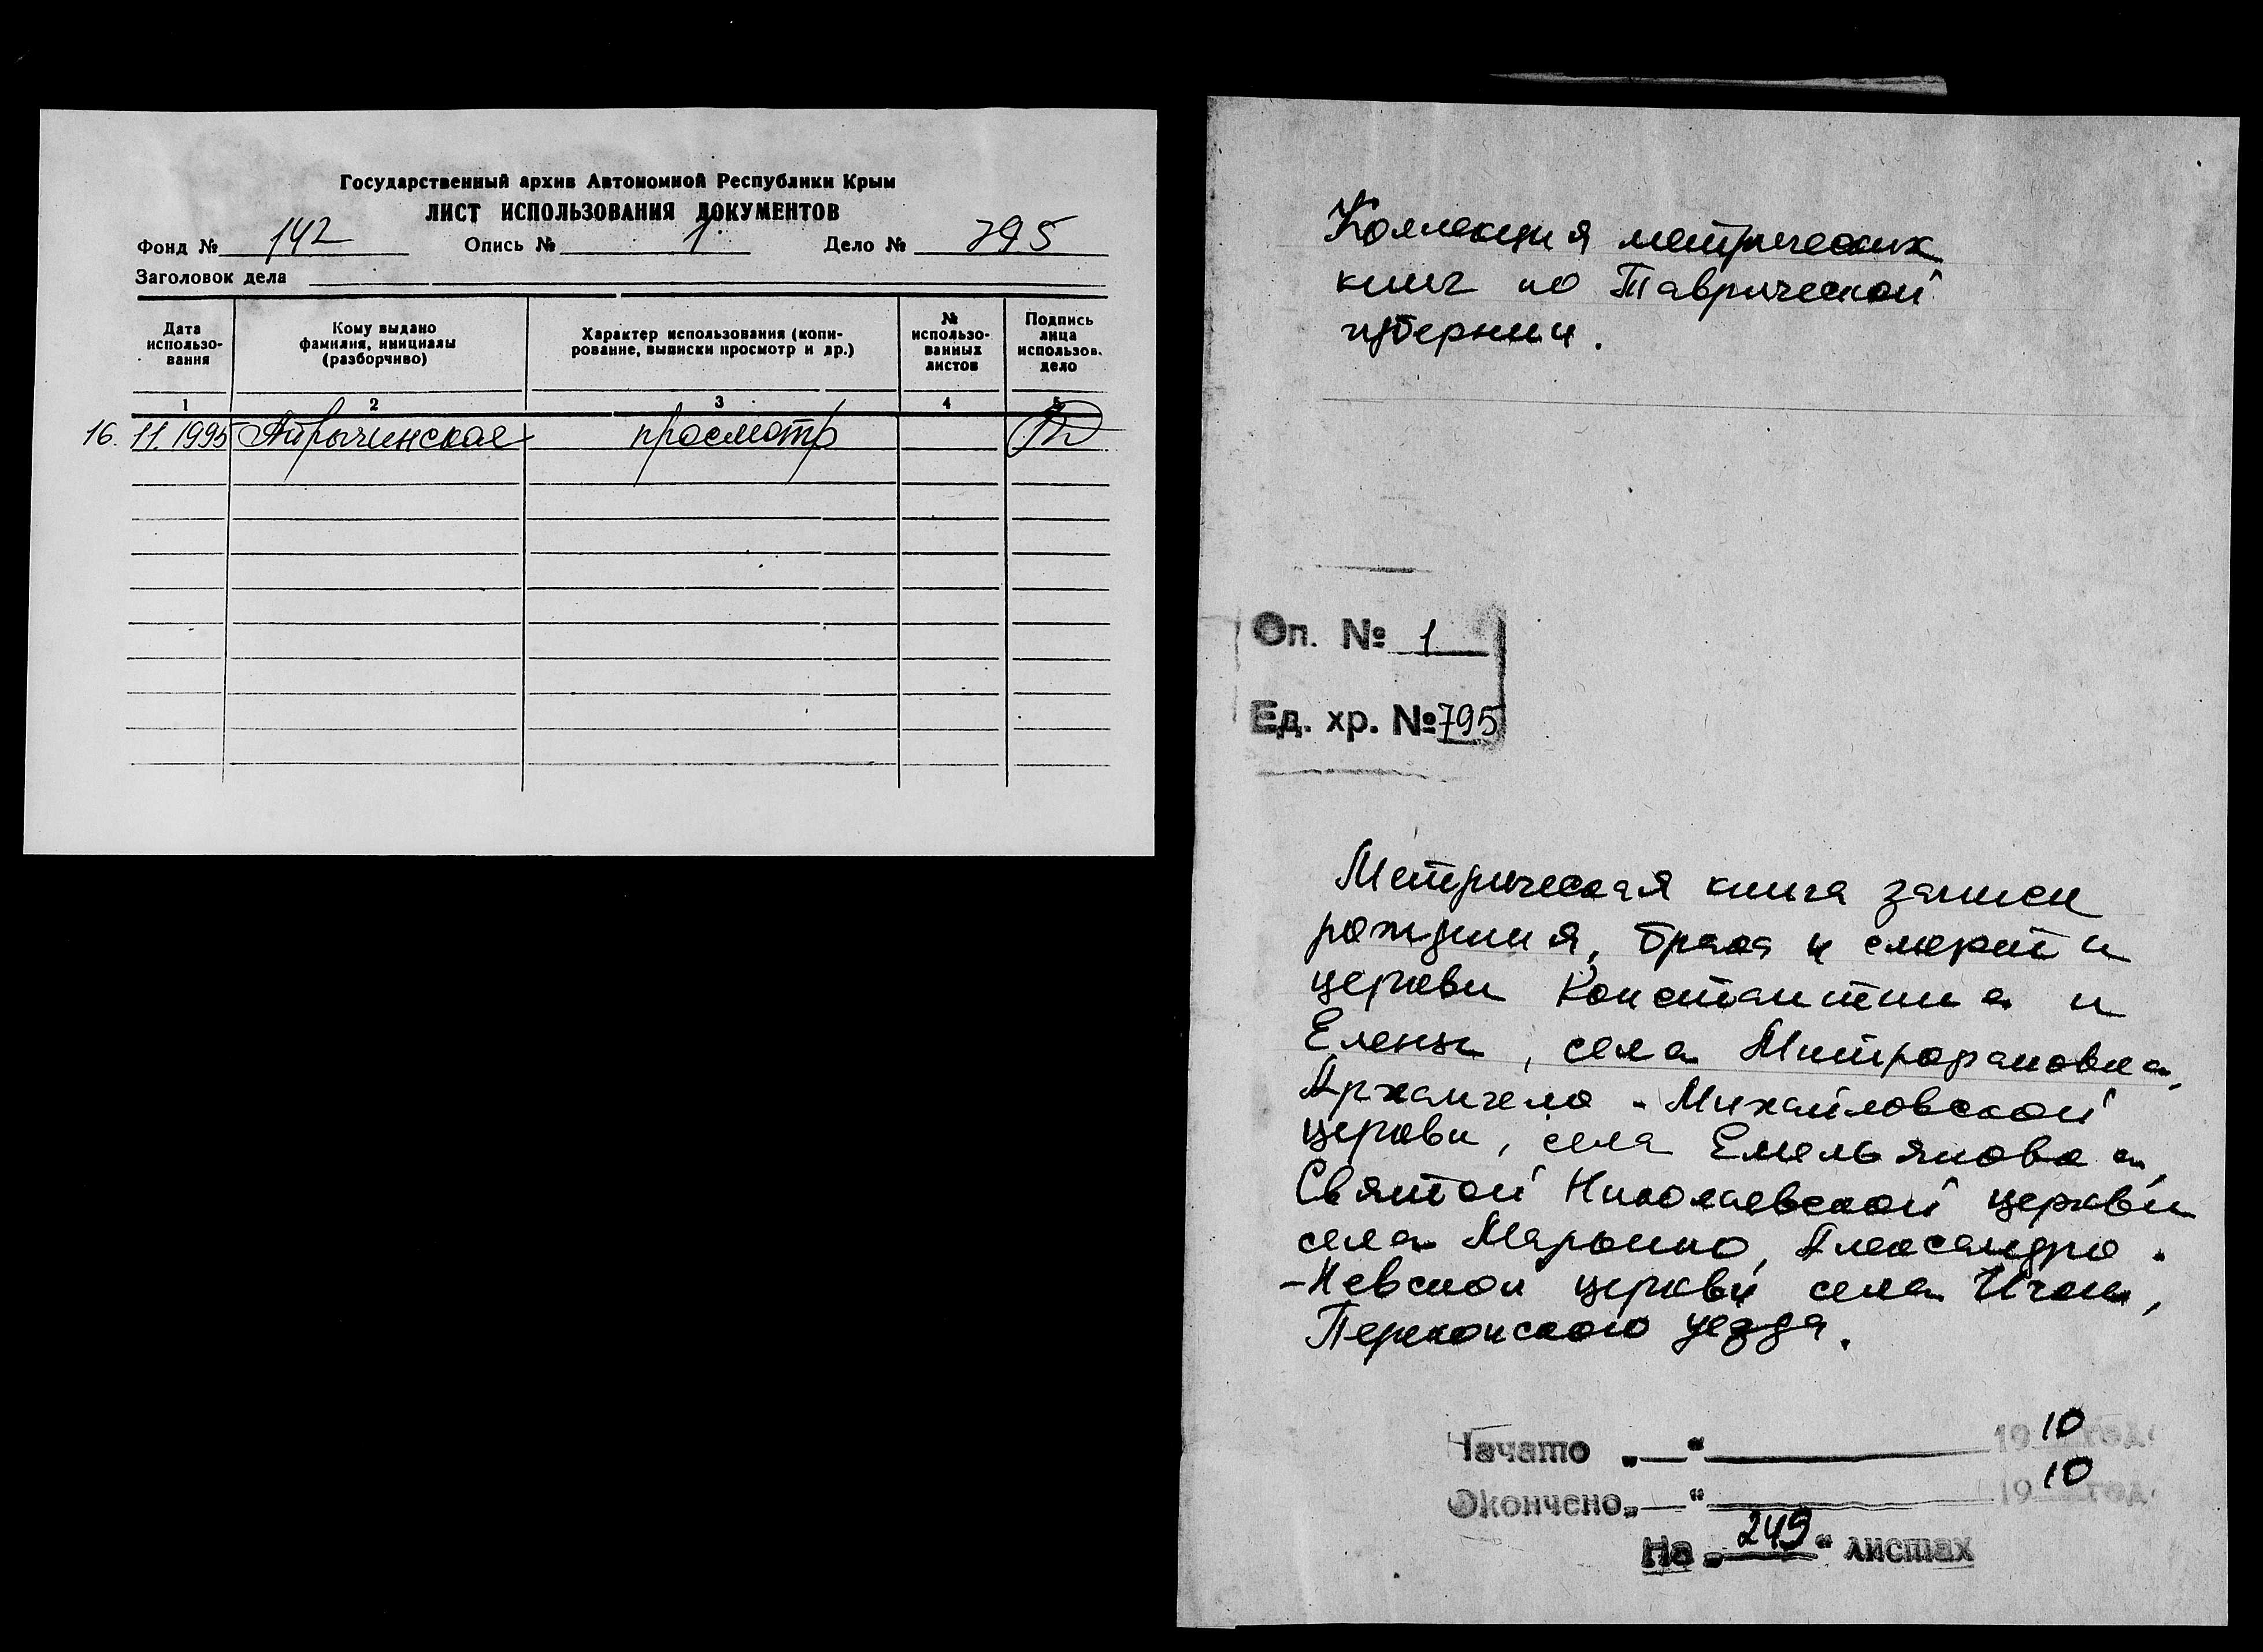 Государственный архив Автономной Республики Крым
ЛИСТ ИСПОЛЬЗОВАНИЯ ДОКУМЕНТОВ
Фонд № 142 Опись № 1 Дело № 795
Заголовок дела
Дата использо-вания
Кому выдано фамилия, инициалы (разборчиво)
Характер использования (копи-рование, выписки просмотр и др.)
№ использо-ванных листов
Подпись лица использов. дело
1 2 3 4 5
16. 11. 1995 просмотр
Коллекция метрических
книг по Таврической
губернии.
Оп. № 1
Ед. хр. № 795
Метрическая книга записи
рождения, брака и смерти
церкви Константина и
Елены, села Митрофановка,
Архангело-Михайловской
церкви, села Емельяновка,
Святой Николаевской церкви
села Марьино, Александро-
-Невской церкви села Ички,
Перекопского уезда.
Начато „—“ 1910 год
Окончено „—“ 1910 год
На „249“ листах